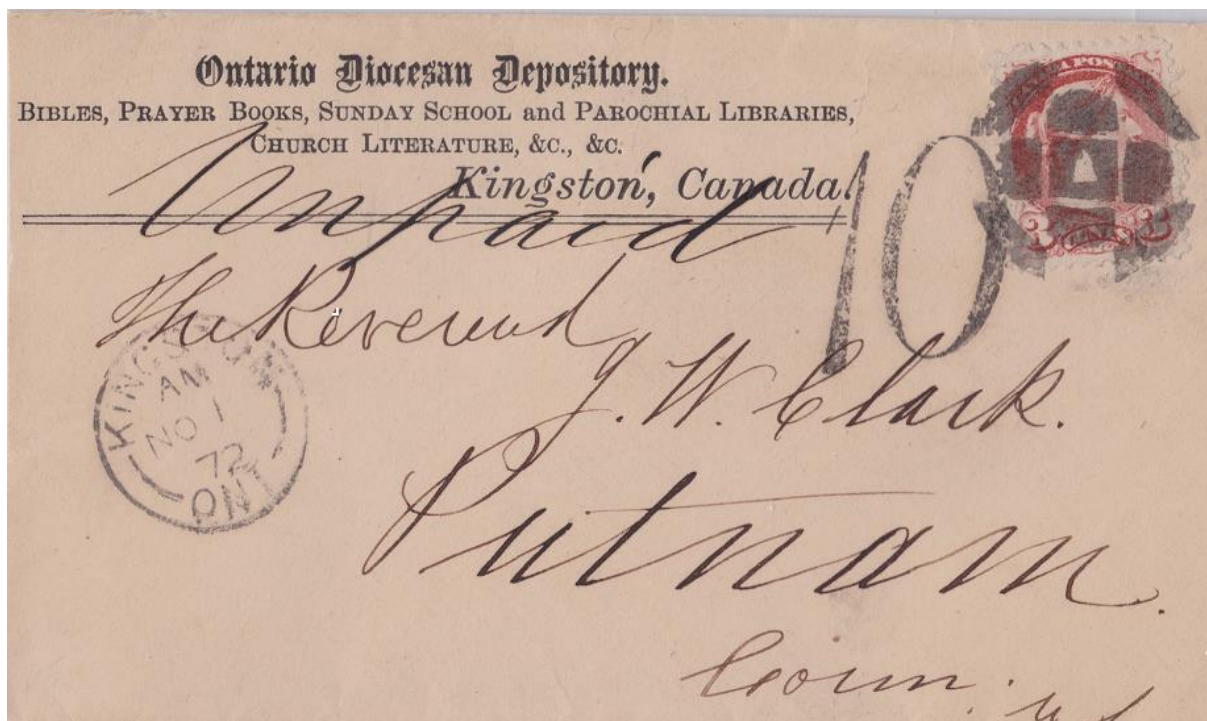 Ontario Diocesan Depository.
BIBLES, PRAYER BOOKS, SUNDAY SCHOOL and PAROCHIAL LIBRARIES,
CHURCH LITERATURE, &C., &C.
Kingston, Canada.
Unpaid
10
3 3
The Reverend
J. W. Clark.
Putnam.
Conn.
KINGSTON
AM
NO 1
72
ONT